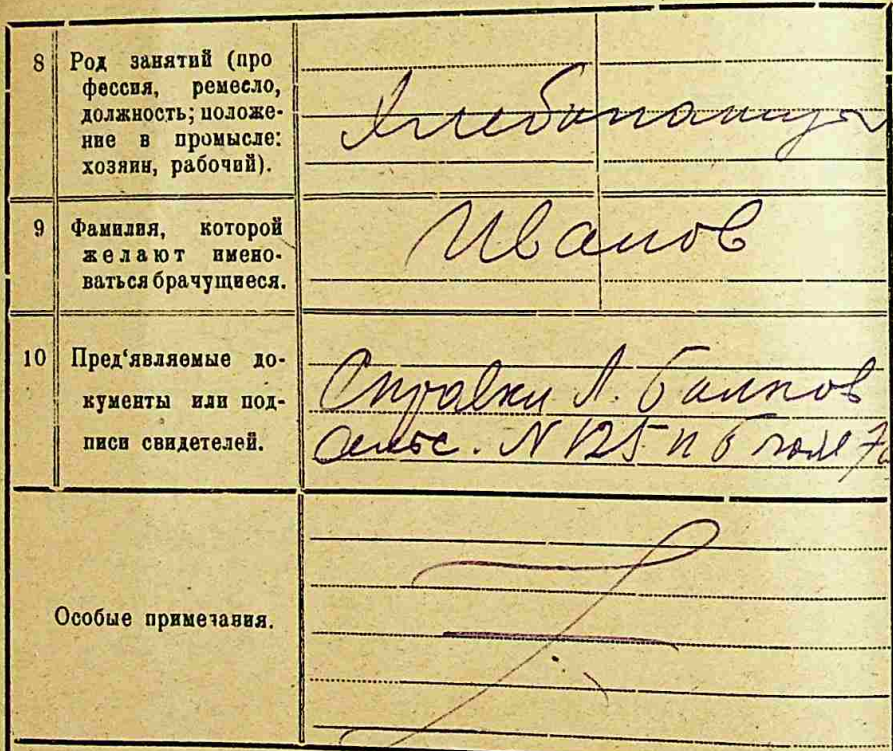 8 Род занятий (про
фессия, ремесло,
должность; положе-
ние в промысле:
хозяин, рабочий).
Хлебопашцы
9 Фамилия, которой
желают имено-
ваться брачущиеся.
Иванов
10 Пред‘являемые до-
кументы или под-
писи свидетелей.
Справки Л.
сельс. N 125 и
Особые примечания.